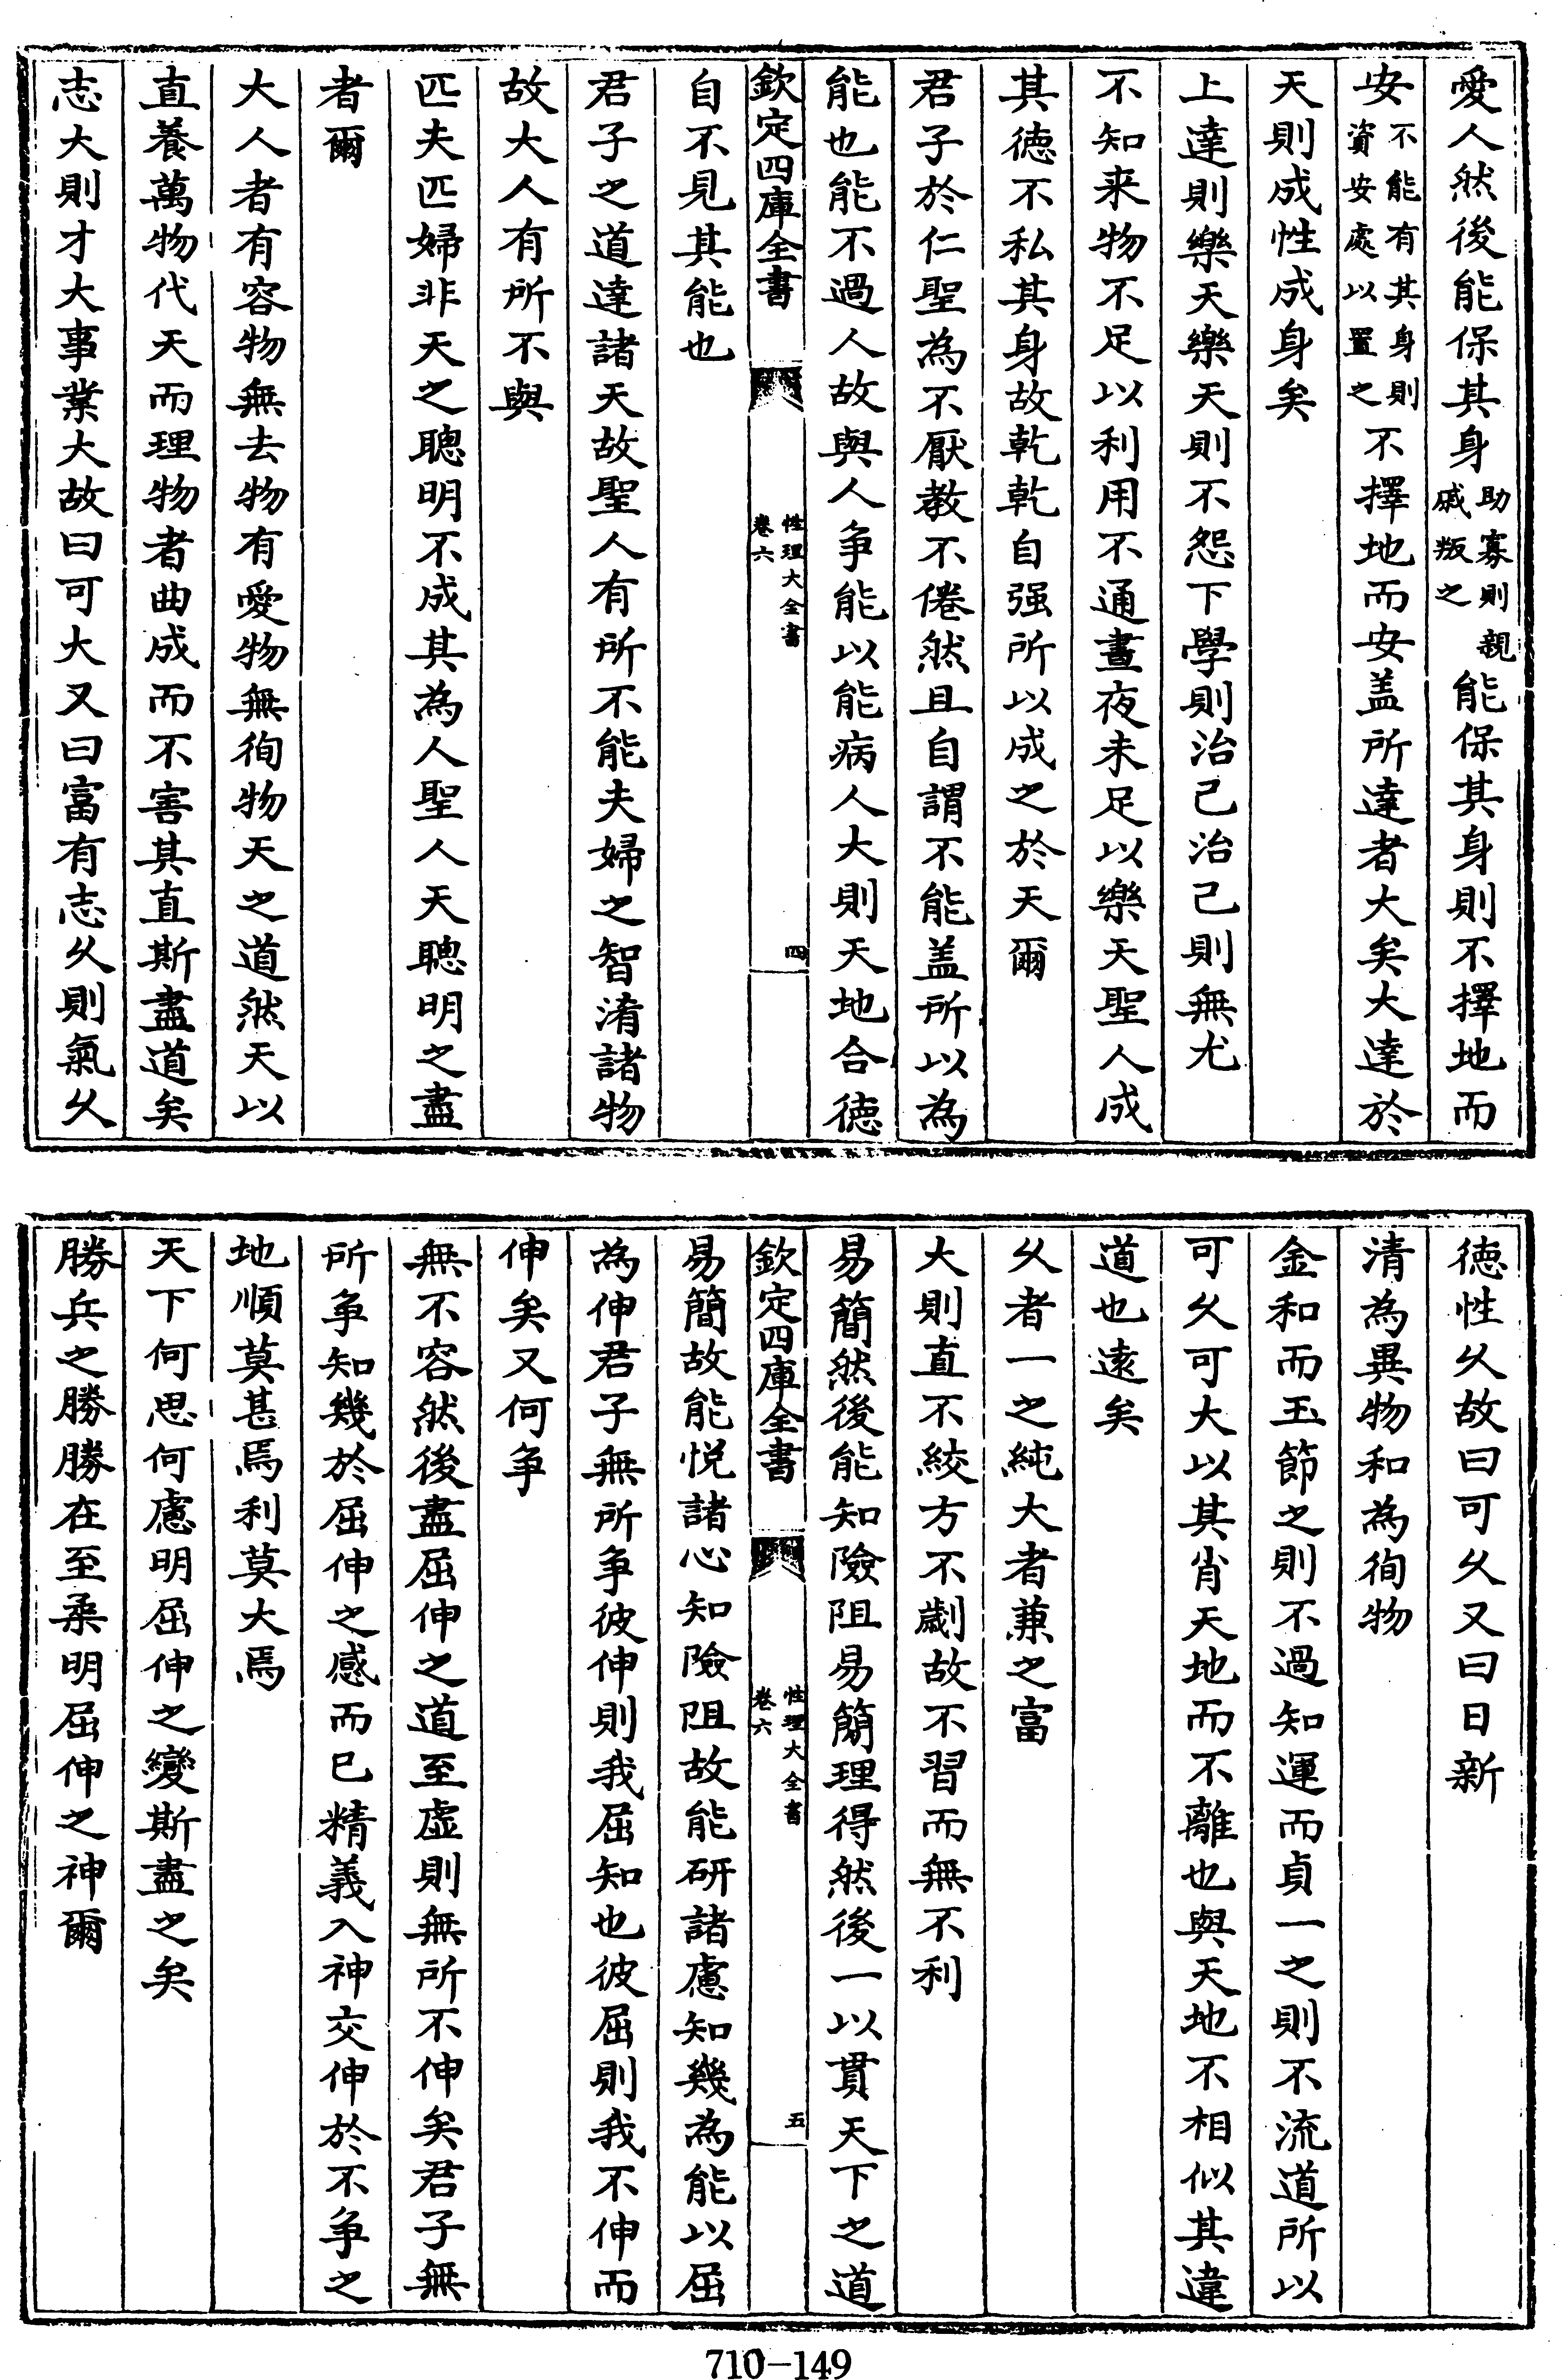 愛人然後能保其身助寡則親戚叛之能保其身則不擇地而
安不能有其身則資安處以置之不擇地而安盖所達者大矣大達於
天則成性成身矣
上達則樂天樂天則不怨下學則治己治己則無尤
不知来物不足以利用不通晝夜未足以樂天聖人成
其德不私其身故乾乾自强所以成之於天爾
君子於仁聖為不厭教不倦然且自謂不能盖所以為
能也能不過人故與人争能以能病人大則天地合德
欽定四庫全書
性理大全書
卷六
四
自不見其能也
君子之道達諸天故聖人有所不能夫婦之智淆諸物
故大人有所不與
匹夫匹婦非天之聰明不成其為人聖人天聰明之盡
者爾
大人者有容物無去物有愛物無徇物天之道然天以
直養萬物代天而理物者曲成而不害其直斯盡道矣
志大則才大事業大故曰可大又曰富有志久則氣久
德性久故曰可久又曰日新
清為異物和為徇物
金和而玉節之則不過知運而貞一之則不流道所以
可久可大以其肖天地而不離也與天地不相似其違
道也遠矣
久者一之純大者兼之富
大則直不絞方不劌故不習而無不利
易簡然後能知險阻易簡理得然後一以貫天下之道
欽定四庫全書
性理大全書
卷六
五
易簡故能悦諸心知險阻故能研諸慮知幾為能以屈
為伸君子無所争彼伸則我屈知也彼屈則我不伸而
伸矣又何争
無不容然後盡屈伸之道至虚則無所不伸矣君子無
所争知幾於屈伸之感而已精義入神交伸於不争之
地順莫甚焉利莫大焉
天下何思何慮明屈伸之變斯盡之矣
勝兵之勝勝在至柔明屈伸之神爾
710-149